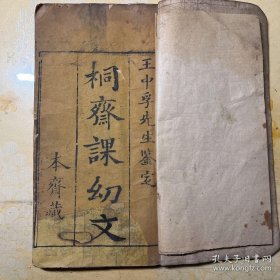 王中孚先生鉴定
桐齋課幼文
本齊藏
孔夫子旧书网